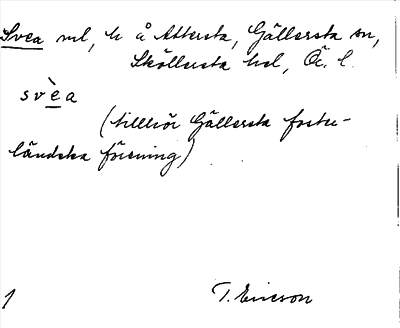 Svea ml, h å Attersta, Gällersta sn,
Sköllersta hd, Ör. l.
svèa
(tillhör Gällersta foster-
ländska förening)
1
T. Ericson